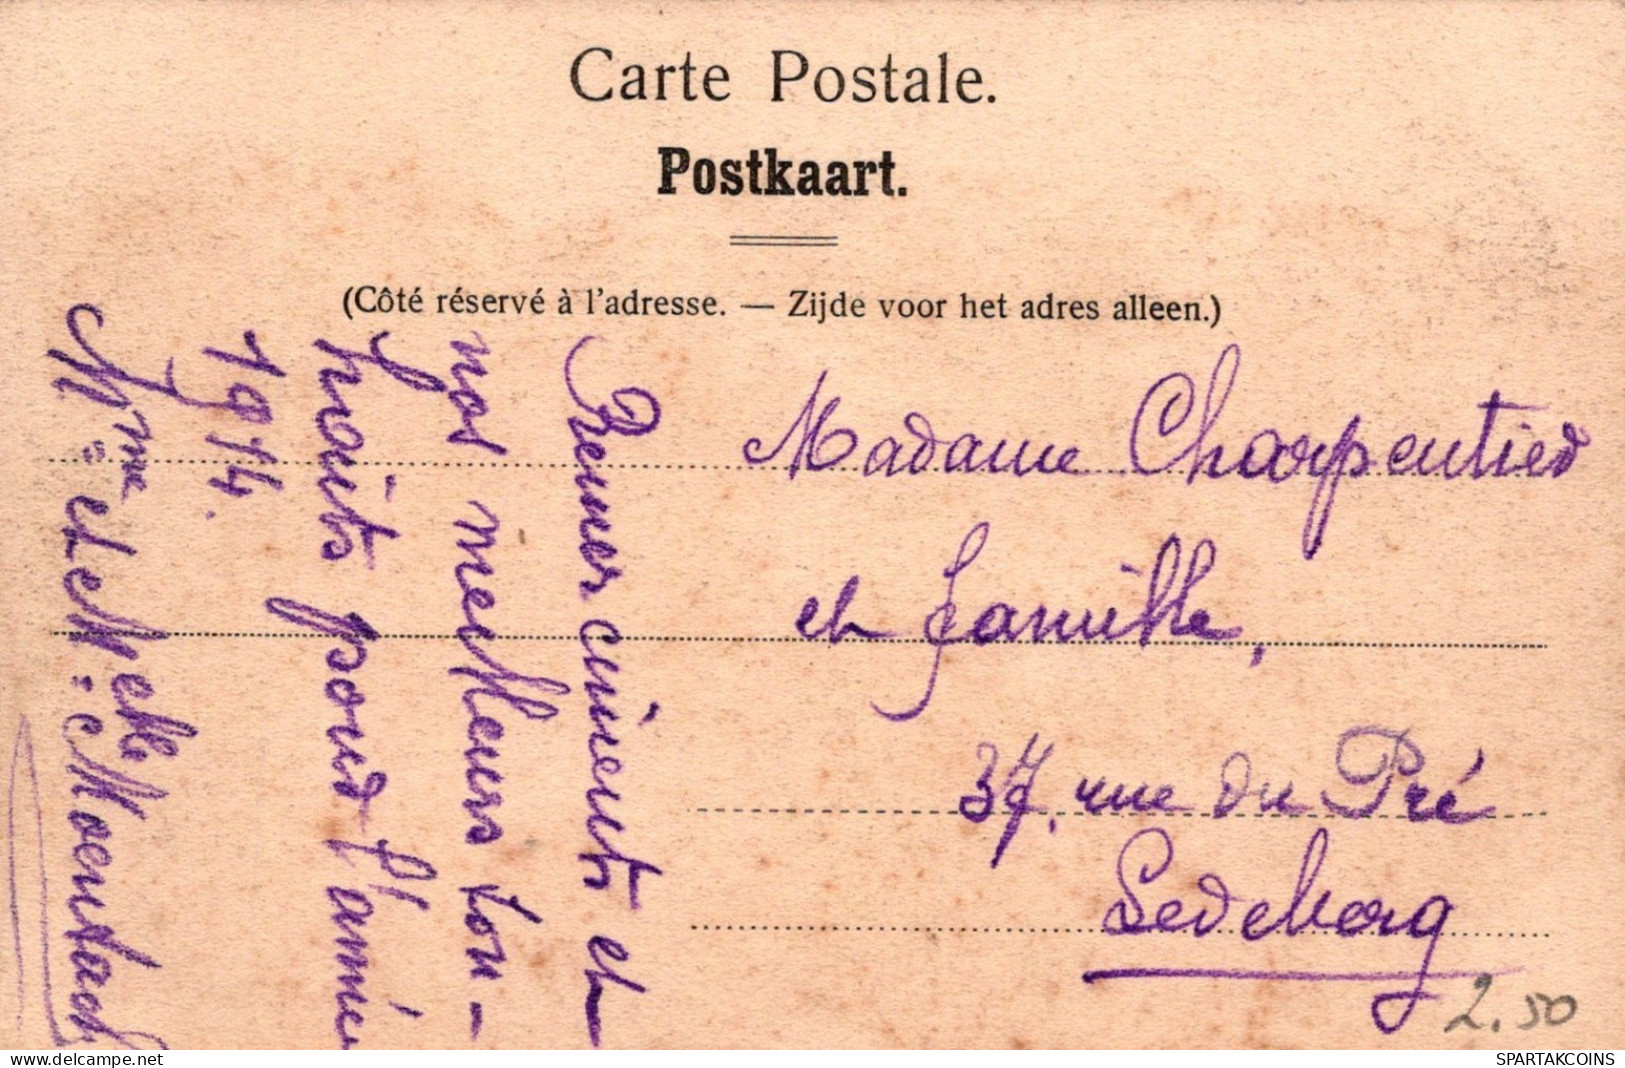 Carte Postale.
Postkaart.
(Côté réservé à l'adresse. — Zijde voor het adres alleen.)
Madame Charpentier
et famille,
37, rue du Pré
Ledeberg
Remerciments et
nos meilleurs sou-
haits pour l'année
1914.
Mme et Melle
2.50
SPARTAKCOINS